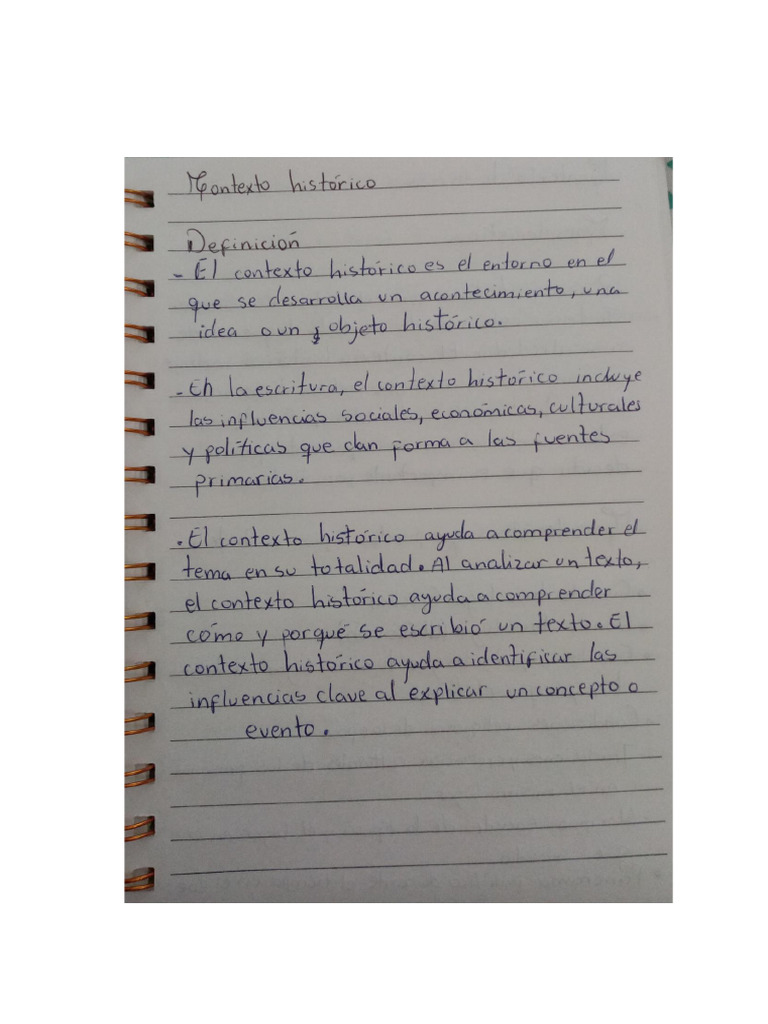 Contexto histórico
Definición
- El contexto histórico es el entorno en el
que se desarrolla un acontecimiento, una
idea o un objeto histórico.
- En la escritura, el contexto historico incluye
las influencias sociales, económicas, culturales
y políticas que dan forma a las fuentes
primarias.
. El contexto histórico ayuda a comprender el
tema en su totalidad. Al analizar un texto,
el contexto histórico ayuda a comprender
cómo y porqué se escribió un texto. El
contexto histórico ayuda a identificar las
influencias clave al explicar un concepto o
evento.